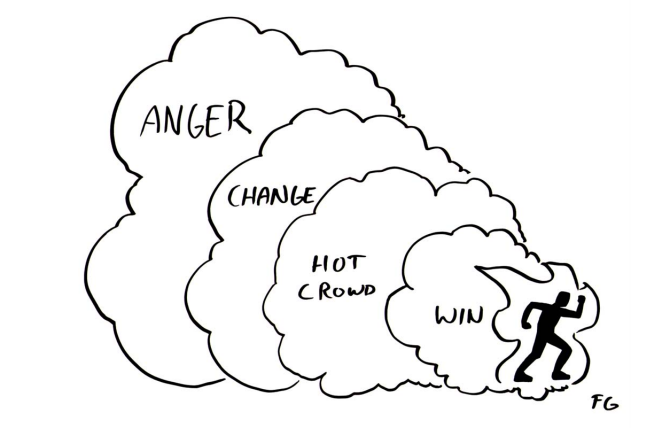 ANGER
CHANGE
HOT
CROWD
WIN
FG